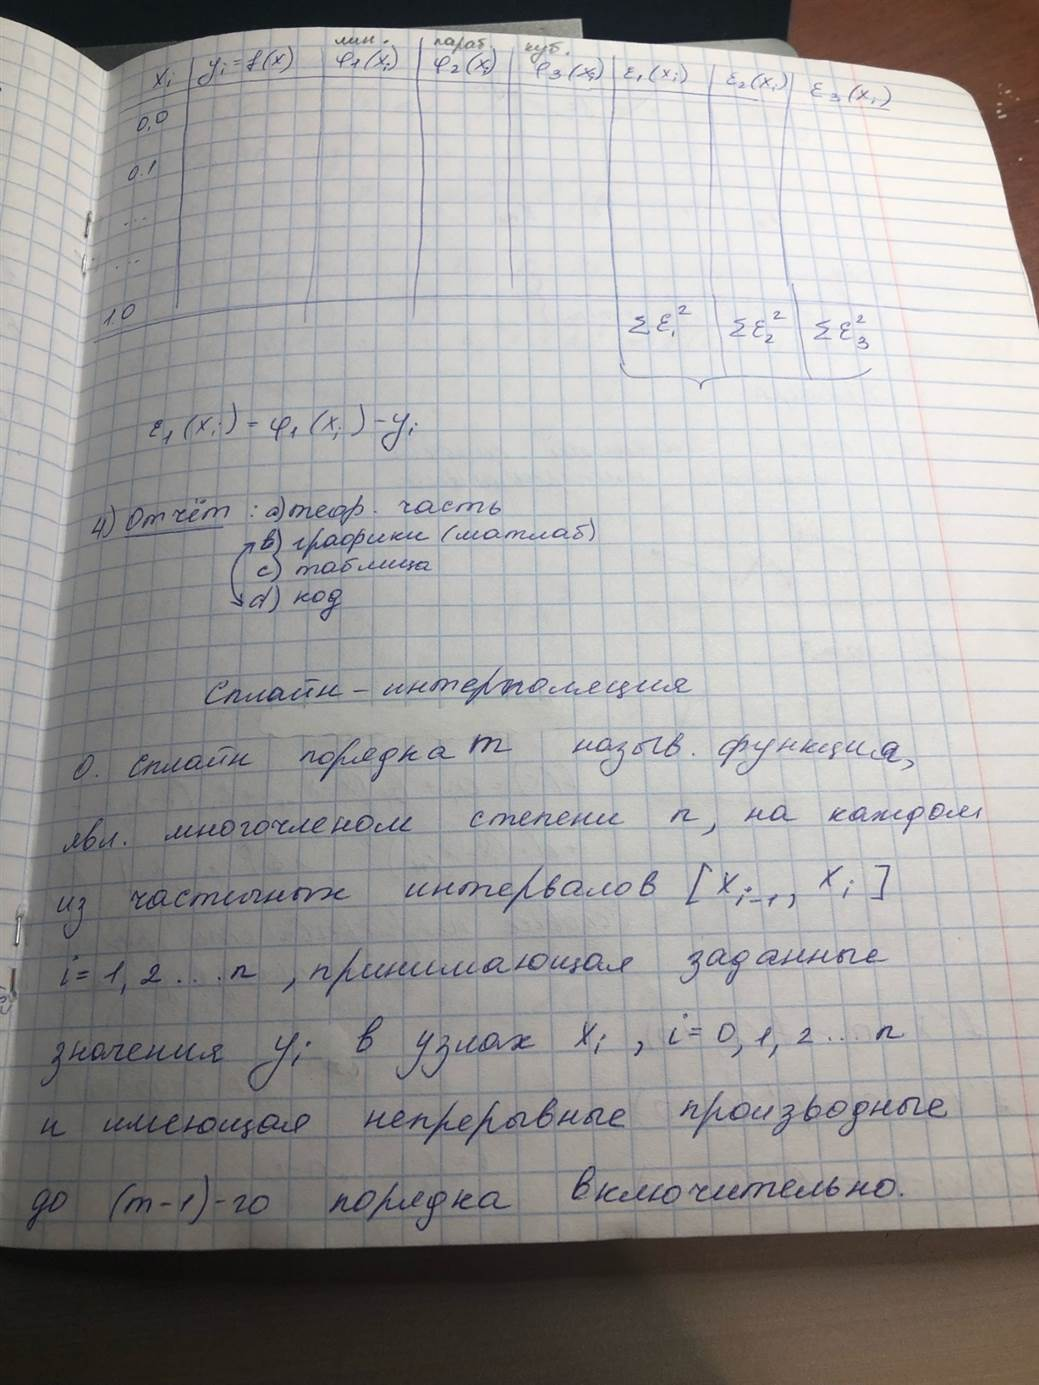 лин. параб. куб.
xᵢ yᵢ = f(x) φ₁(xᵢ) φ₂(xᵢ) φ₃(xᵢ) ε₁(xᵢ) ε₂(xᵢ) ε₃(xᵢ)
0,0
0.1
...
...
1.0
Σε₁² Σε₂² Σε₃²
ε₁(xᵢ) = φ₁(xᵢ) - yᵢ
4) Отчёт: a) теор. часть
b) графики (матлаб)
c) таблица
d) код
Сплайн - интерполяция
О. Сплайн порядка m назыв. функция,
явл. многочленом степени n, на каждом
из частичных интервалов [xᵢ₋₁, xᵢ]
i = 1, 2 ... n, принимающая заданные
значения yᵢ в узлах xᵢ, i = 0, 1, 2 ... n
и имеющая непрерывные производные
до (m-1)-го порядка включительно.